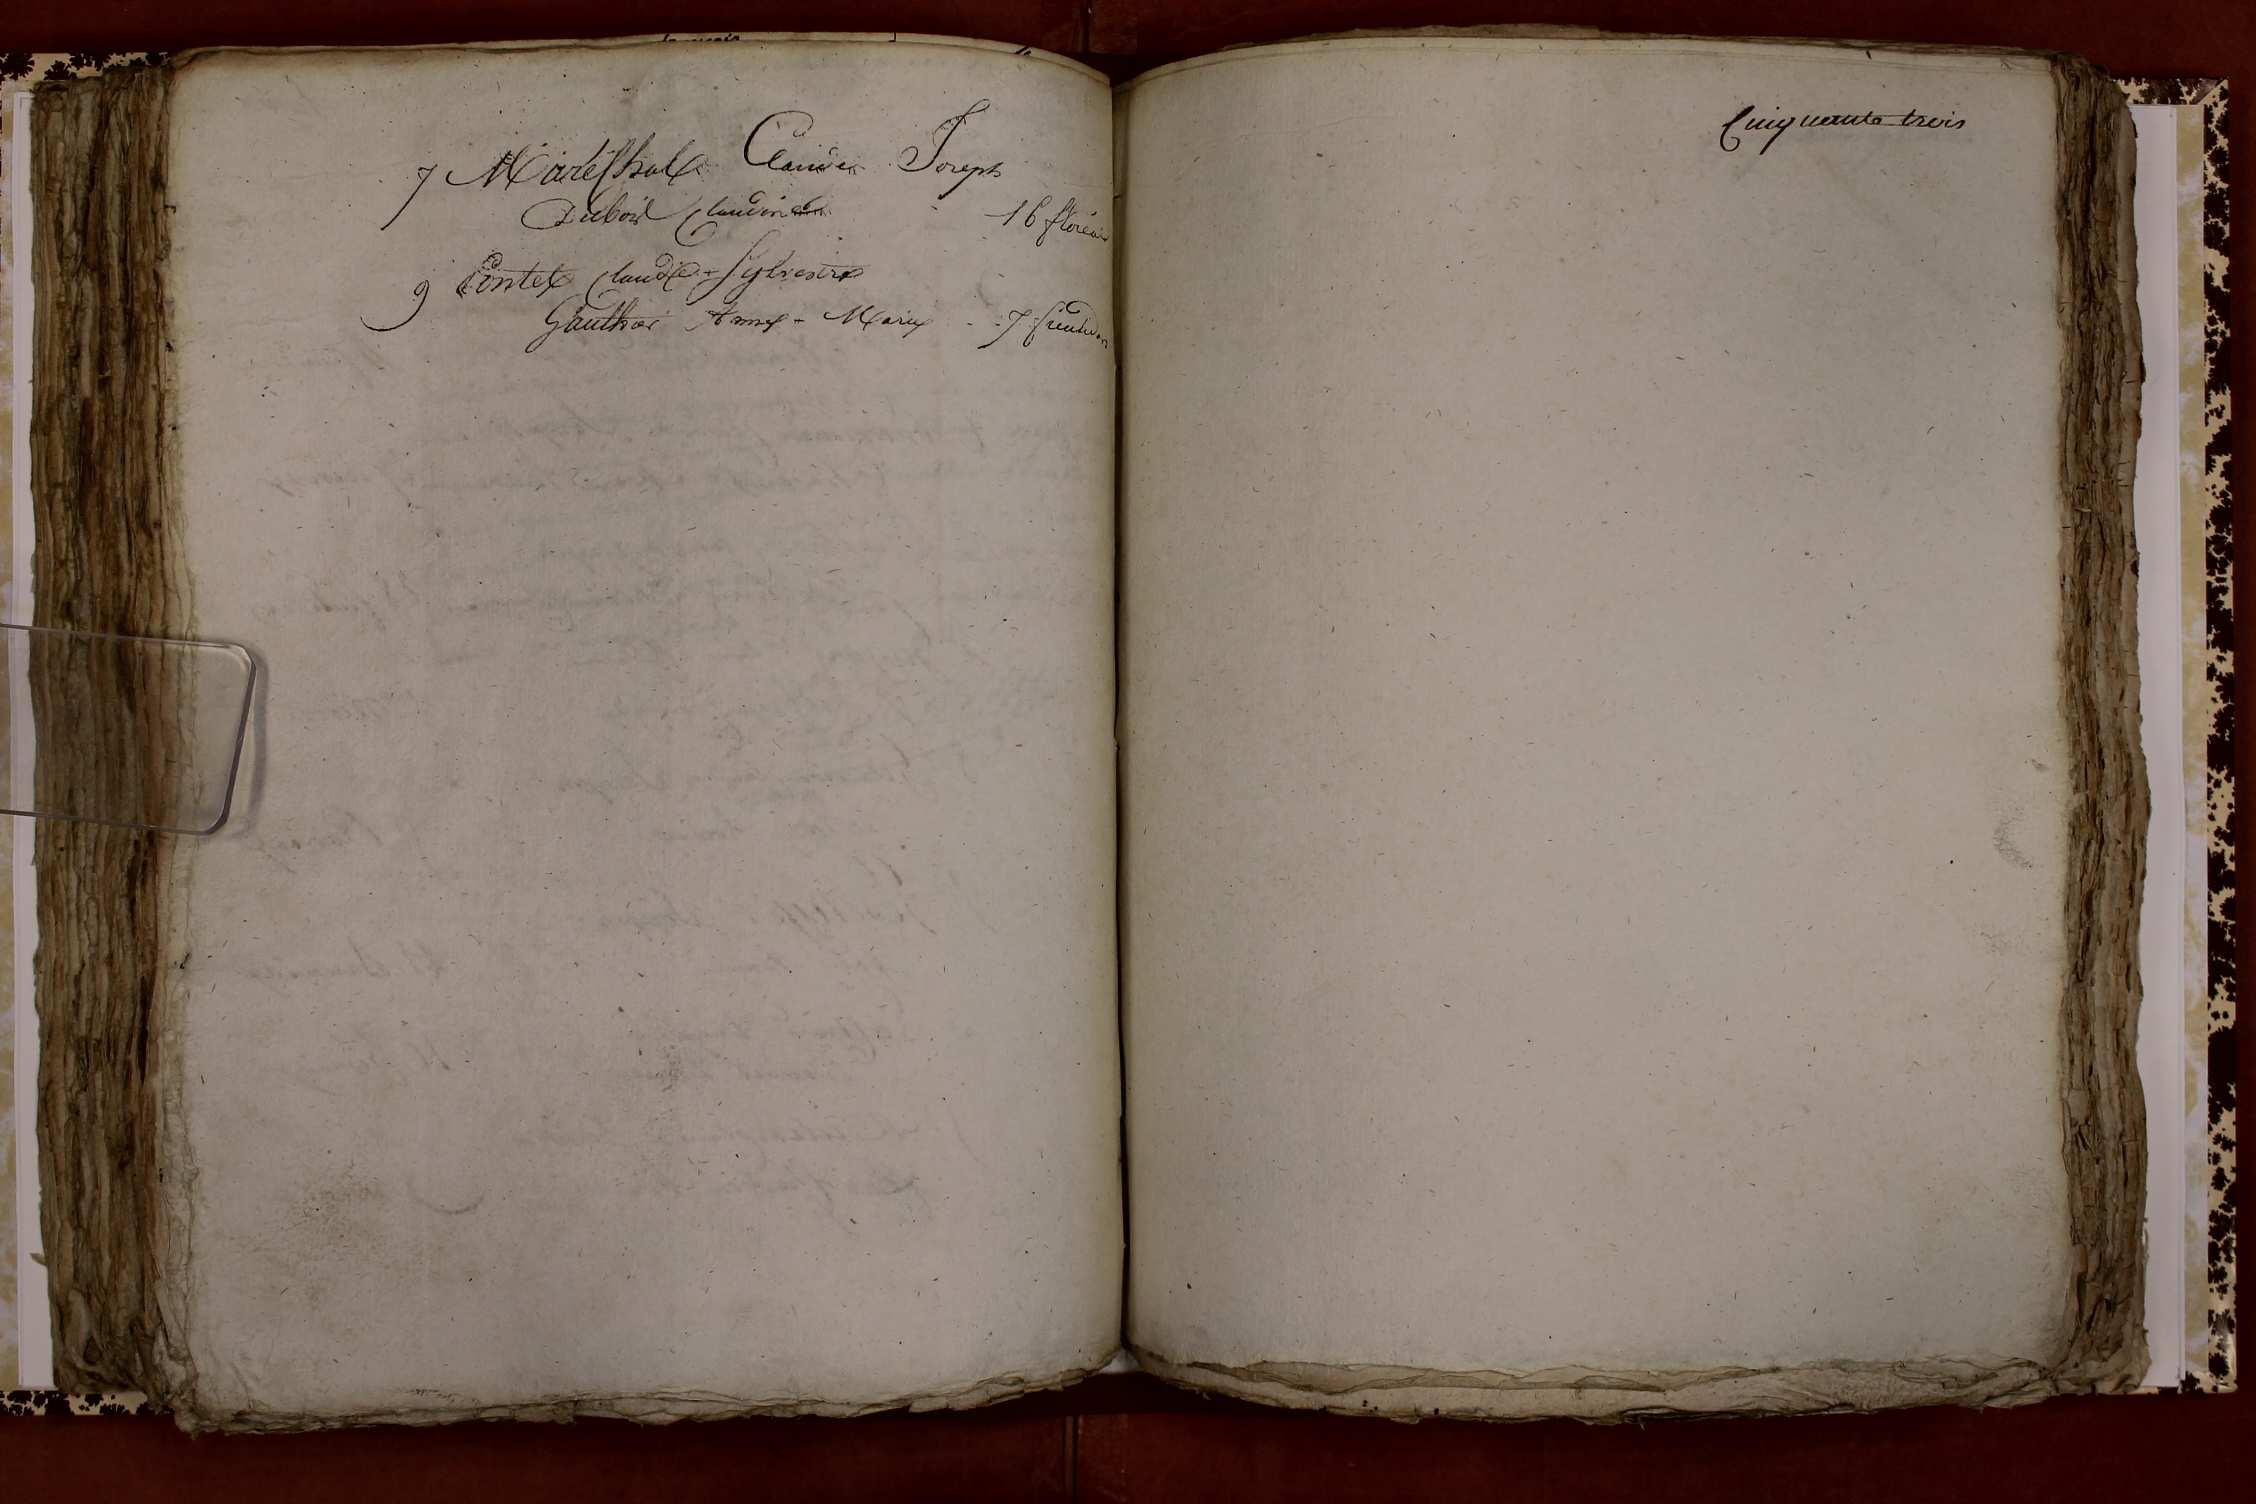 7 Mareschal Claude Joseph
Dubois Claudine 16 floréal
9 Pontet Claude - Sylvestre
Gauthier Anne - Marie 7
Cinquante trois